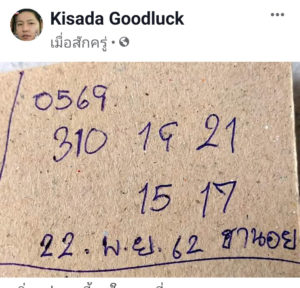 Kisada Goodluck
เมื่อสักครู่ ·
0569
310 19 21
15 17
22. พ.ย. 62 ฮานอย